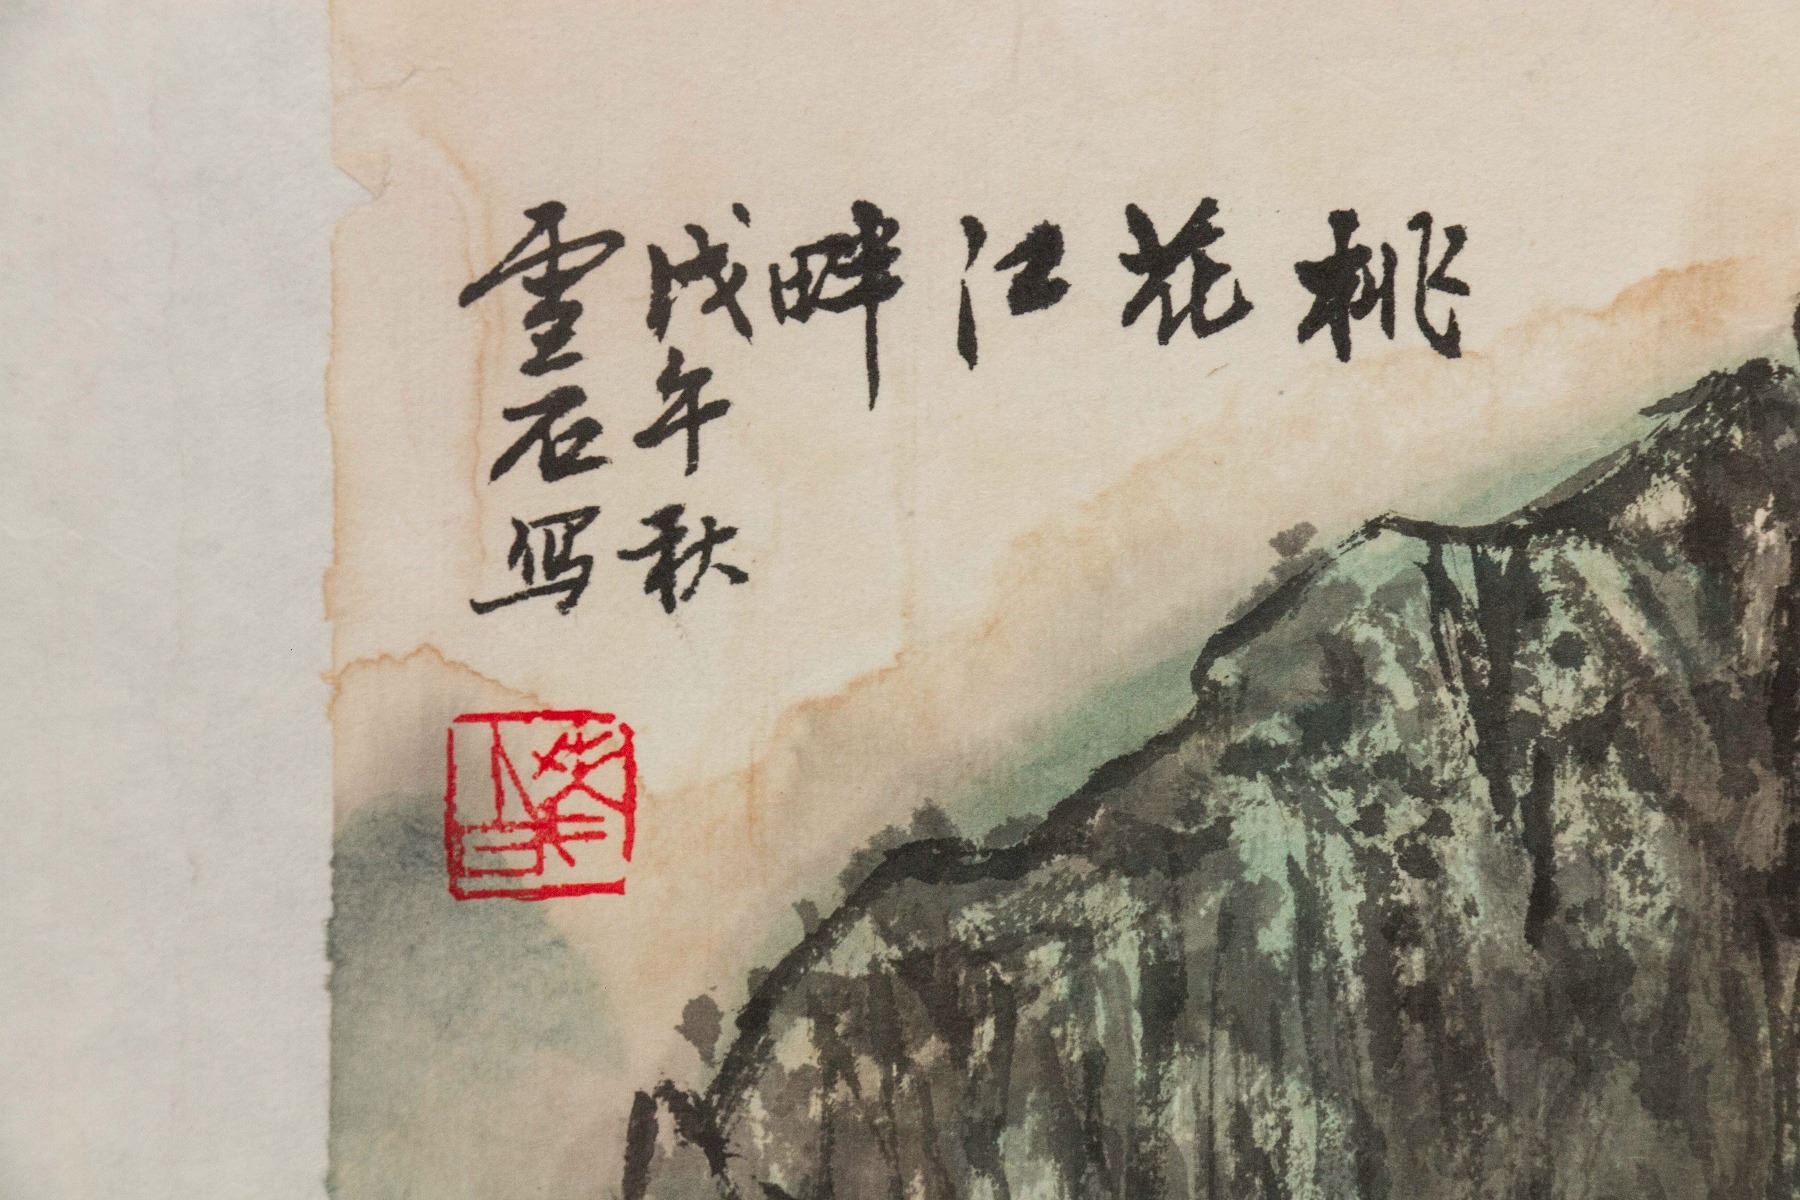 桃花江畔
戊午秋
雪石写